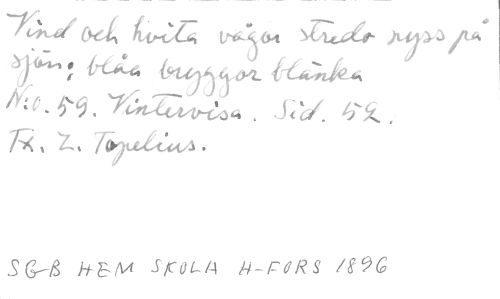 Vind och hvita vågor stredo nyss på
sjön; blåa bryggor blänka
N:o. 59. Vintervisa. Sid. 52.
Tx. Z. Topelius.
SGB HEM SKOLA H-FORS 1896